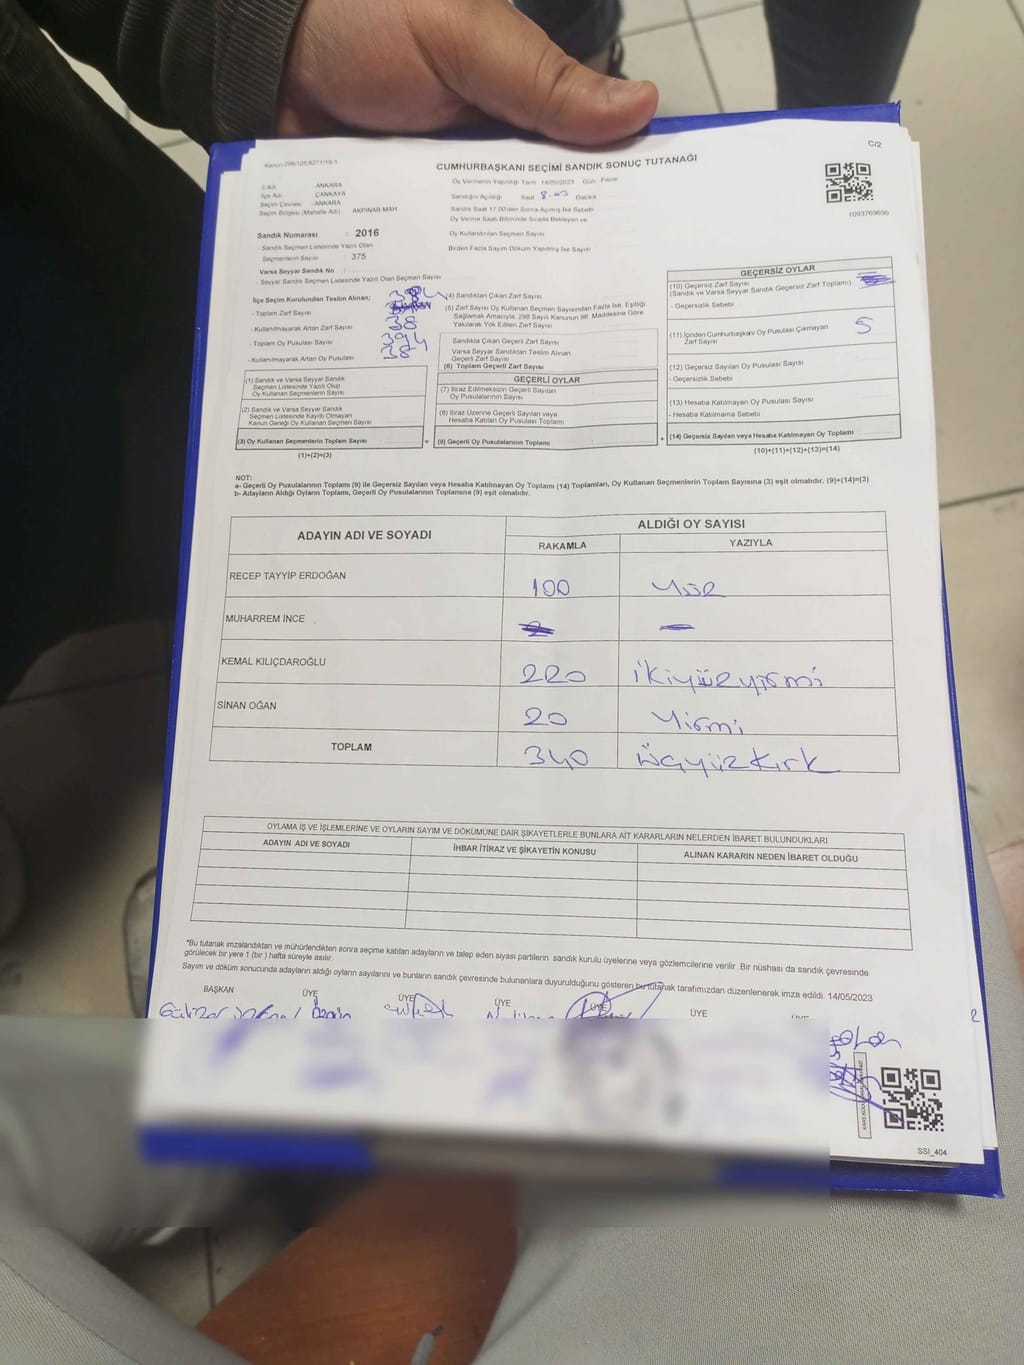 Kanun:298/105,6271/18-1
C/2
CUMHURBAŞKANI SEÇİMİ SANDIK SONUÇ TUTANAĞI
İl Adı : ANKARA
İlçe Adı : ÇANKAYA
Seçim Çevresi : ANKARA
Seçim Bölgesi (Mahalle Adı) : AKPINAR MAH
Oy Vermenin Yapıldığı Tarih 14/05/2023 Gün : Pazar
Sandığın Açıldığı Saat Dakika
Sandık Saat 17:00'den Sonra Açılmış İse Sebebi
Oy Verme Saati Bitiminde Sırada Bekleyen ve
Oy Kullandırılan Seçmen Sayısı
Birden Fazla Sayım Döküm Yapılmış İse Sayısı
1093769690
Sandık Numarası : 2016
- Sandık Seçmen Listesinde Yazılı Olan
Seçmenlerin Sayısı : 375
Varsa Seyyar Sandık No
- Seyyar Sandık Seçmen Listesinde Yazılı Olan Seçmen Sayısı
İlçe Seçim Kurulundan Teslim Alınan;
- Toplam Zarf Sayısı
- Kullanılmayarak Artan Zarf Sayısı 38
- Toplam Oy Pusulası Sayısı
- Kullanılmayarak Artan Oy Pusulası 38
(1) Sandık ve Varsa Seyyar Sandık
Seçmen Listesinde Yazılı Olup
Oy Kullanan Seçmenlerin Sayısı
(2) Sandık ve Varsa Seyyar Sandık
Seçmen Listesinde Kayıtlı Olmayan
Kanun Gereği Oy Kullanan Seçmen Sayısı
(3) Oy Kullanan Seçmenlerin Toplam Sayısı :
(1)+(2)=(3)
=
(4) Sandıktan Çıkan Zarf Sayısı
(5) Zarf Sayısı Oy Kullanan Seçmen Sayısından Fazla İse, Eşitliği
Sağlamak Amacıyla, 298 Sayılı Kanunun 98. Maddesine Göre
Yakılarak Yok Edilen Zarf Sayısı
Sandıkta Çıkan Geçerli Zarf Sayısı
Varsa Seyyar Sandıktan Teslim Alınan
Geçerli Zarf Sayısı
(6) Toplam Geçerli Zarf Sayısı
GEÇERLİ OYLAR
(7) İtiraz Edilmeksizin Geçerli Sayılan
Oy Pusulalarının Sayısı
(8) İtiraz Üzerine Geçerli Sayılan veya
Hesaba Katılan Oy Pusulası Toplamı
(9) Geçerli Oy Pusulalarının Toplamı
+
GEÇERSİZ OYLAR
(10) Geçersiz Zarf Sayısı
(Sandık ve Varsa Seyyar Sandık Geçersiz Zarf Toplamı)
- Geçersizlik Sebebi
(11) İçinden Cumhurbaşkanı Oy Pusulası Çıkmayan
Zarf Sayısı 5
(12) Geçersiz Sayılan Oy Pusulası Sayısı
- Geçersizlik Sebebi
(13) Hesaba Katılmayan Oy Pusulası Sayısı
- Hesaba Katılmama Sebebi
(14) Geçersiz Sayılan veya Hesaba Katılmayan Oy Toplamı
(10)+(11)+(12)+(13)=(14)
NOT:
a- Geçerli Oy Pusulalarının Toplamı (9) ile Geçersiz Sayılan veya Hesaba Katılmayan Oy Toplamı (14) Toplamları, Oy Kullanan Seçmenlerin Toplam Sayısına (3) eşit olmalıdır. (9)+(14)=(3)
b- Adayların Aldığı Oyların Toplamı, Geçerli Oy Pusulalarının Toplamına (9) eşit olmalıdır.
ADAYIN ADI VE SOYADI
ALDIĞI OY SAYISI
RAKAMLA YAZIYLA
RECEP TAYYİP ERDOĞAN 100 Yüz
MUHARREM İNCE
KEMAL KILIÇDAROĞLU 220 ikiyüzyirmi
SİNAN OĞAN 20 Yirmi
TOPLAM 340 üçyüzkırk
OYLAMA İŞ VE İŞLEMLERİNE VE OYLARIN SAYIM VE DÖKÜMÜNE DAİR ŞİKAYETLERLE BUNLARA AİT KARARLARIN NELERDEN İBARET BULUNDUKLARI
ADAYIN ADI VE SOYADI İHBAR İTİRAZ VE ŞİKAYETİN KONUSU ALINAN KARARIN NEDEN İBARET OLDUĞU
*Bu tutanak imzalandıktan ve mühürlendikten sonra seçime katılan adayların ve talep eden siyasi partilerin sandık kurulu üyelerine veya gözlemcilerine verilir. Bir nüshası da sandık çevresinde
görülecek bir yere 1 (bir ) hafta süreyle asılır.
Sayım ve döküm sonucunda adayların aldığı oyların sayılarını ve bunların sandık çevresinde bulunanlara duyurulduğunu gösteren bu tutanak tarafımızdan düzenlenerek imza edildi. 14/05/2023
BAŞKAN ÜYE ÜYE ÜYE ÜYE ÜYE
SSI_404